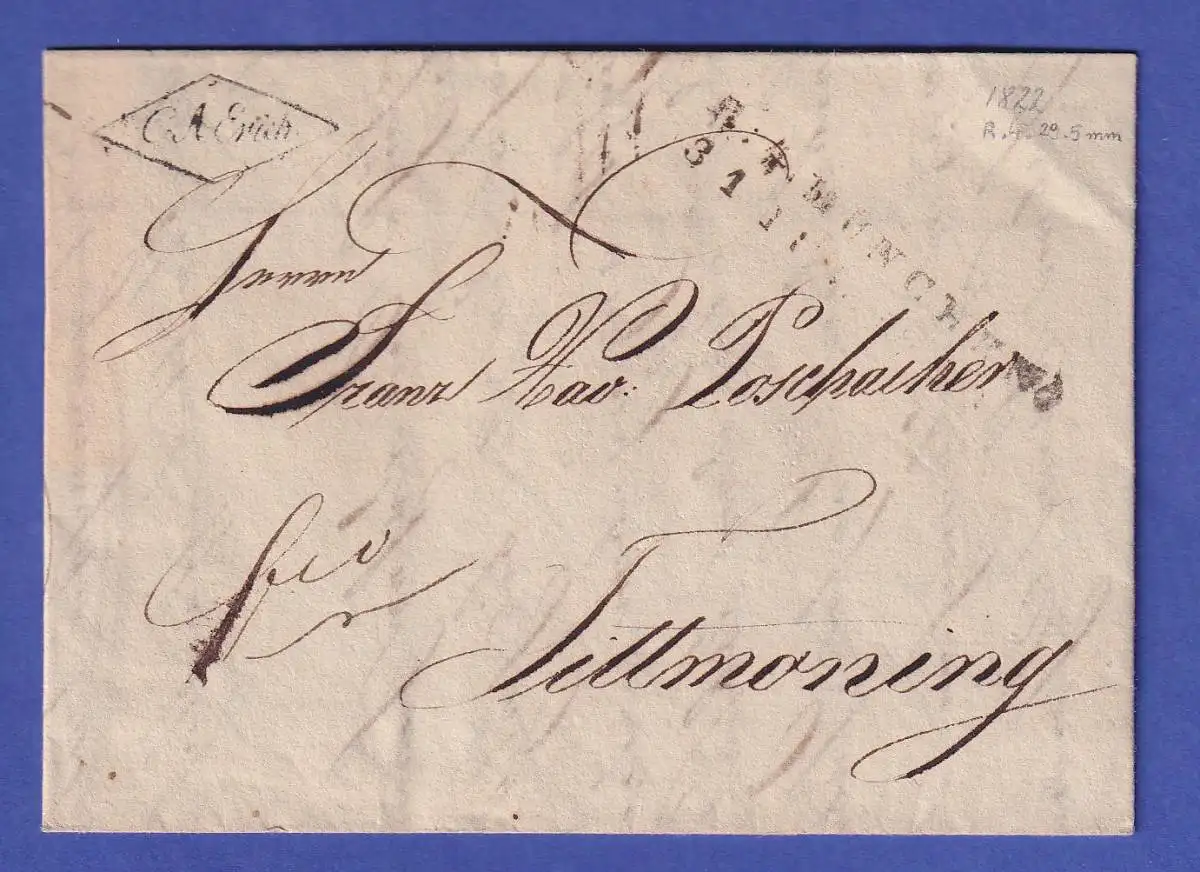 C. A. Erich
1822
R. 4. 29.5 mm
R. 4 MÜNCHEN
Herrn
Franz Xav: Poschacher
fco
Tittmoning